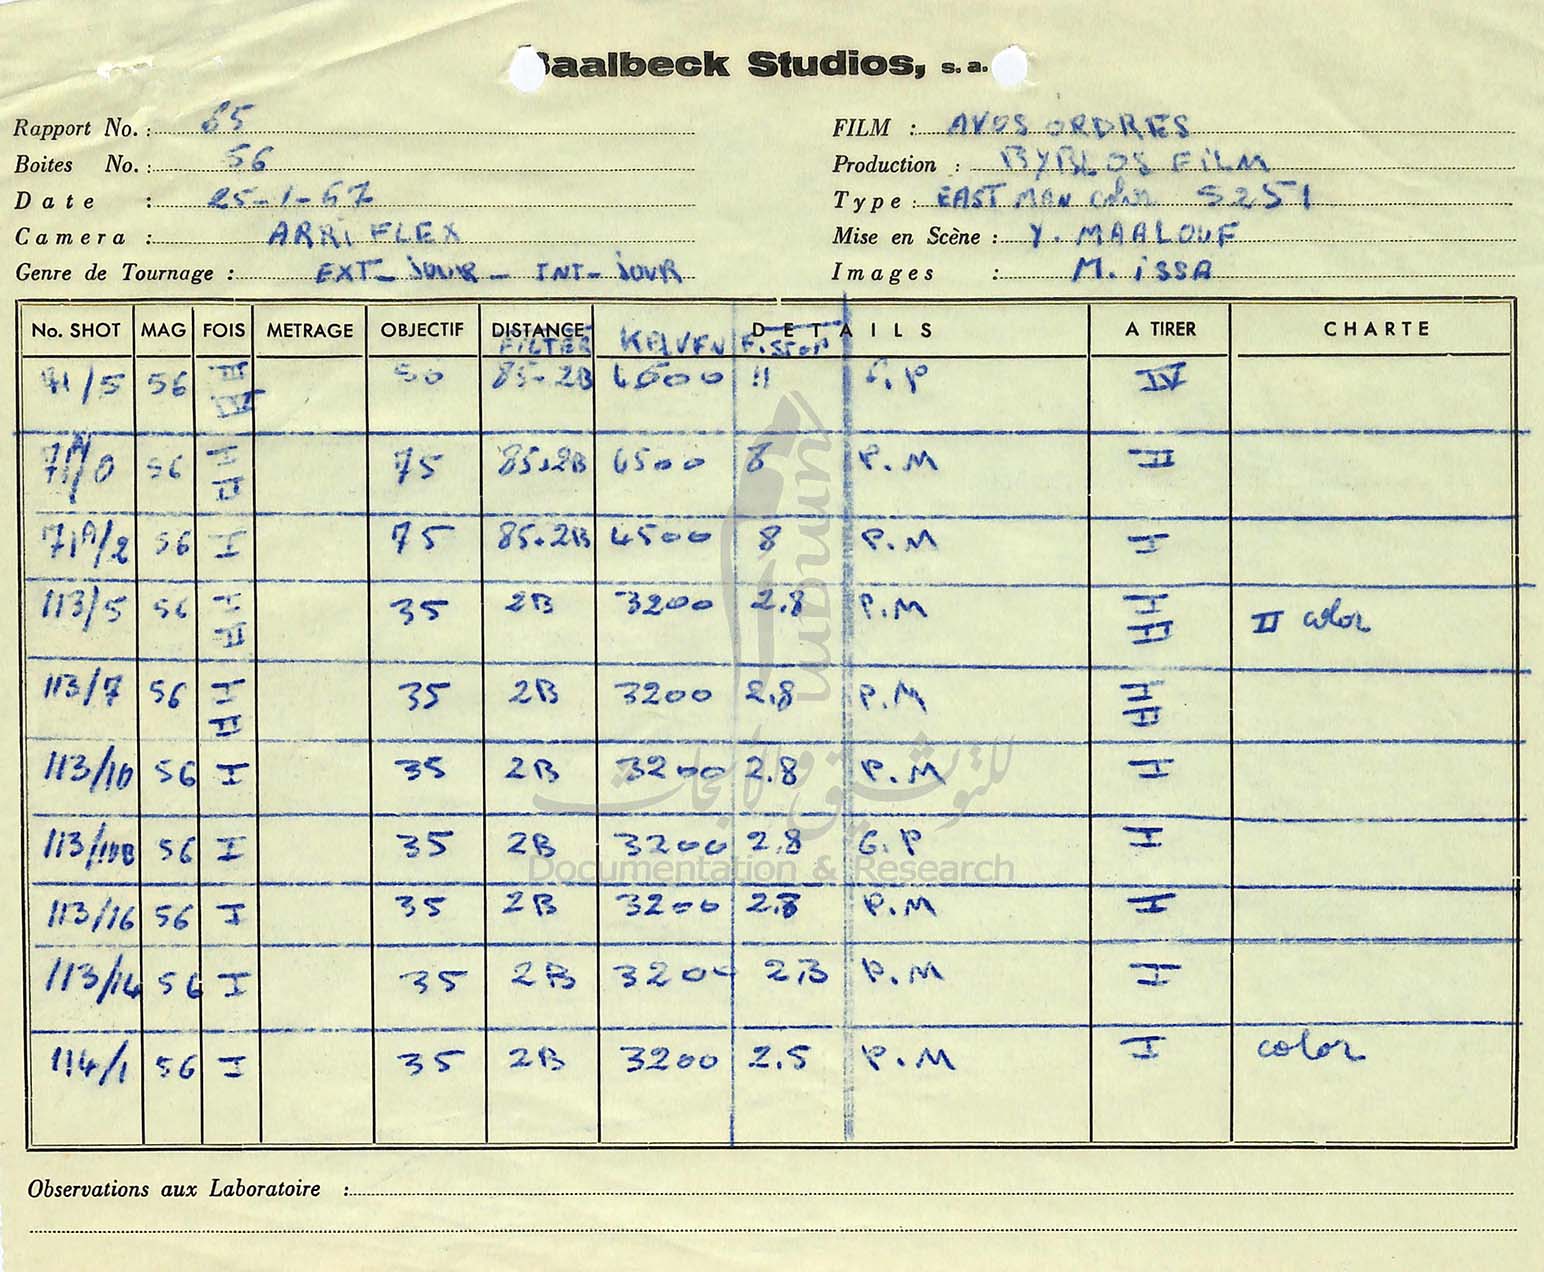 Baalbeck Studios, s.a.
Rapport No. : 85
FILM : AVOS ORDRES
Boites No. : 56
Production : BYBLOS FILM
Date : 25-1-67
Type : EAST MAN Color 5251
Camera : ARRI FLEX
Mise en Scène : Y. MAALOUF
Genre de Tournage : EXT - JOUR - INT - JOUR
Images : M. ISSA
No. SHOT MAG FOIS METRAGE OBJECTIF DISTANCE DETAILS A TIRER CHARTE
FILTER KELVEN F. STOP
71/5 56 III IV 50 85-2B 4500 11 G.P IV
71A/0 56 I II 75 85.2B 4500 8 P.M II
71A/2 56 I 75 85.2B 4500 8 P.M I
113/5 56 I II 35 2B 3200 2.8 P.M I II II color
113/7 56 I II 35 2B 3200 2.8 P.M I II
113/10 56 I 35 2B 3200 2.8 P.M I
113/10B 56 I 35 2B 3200 2.8 G.P I
113/16 56 I 35 2B 3200 2.8 P.M I
113/14 56 I 35 2B 3200 2.8 P.M I
114/1 56 I 35 2B 3200 2.5 P.M I color
Observations aux Laboratoire :
umam
للتوثيق والأبحاث
Documentation & Research